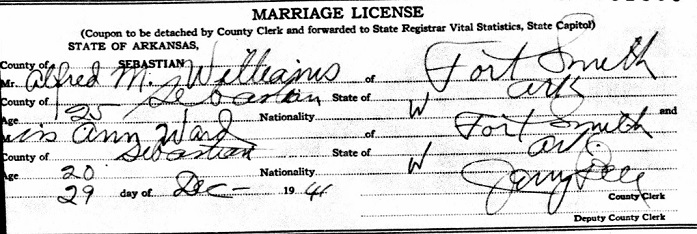 MARRIAGE LICENSE
(Coupon to be detached by County Clerk and forwarded to State Registrar Vital Statistics, State Capitol)
STATE OF ARKANSAS,
County of SEBASTIAN
Mr. Alfred M. Williams of Fort Smith
County of Sebastian State of Ark
Age 25 Nationality W and
Miss Ann Ward of Fort Smith
County of Sebastian State of Ark.
Age 20 Nationality W
29 day of Dec- 19
County Clerk
Deputy County Clerk